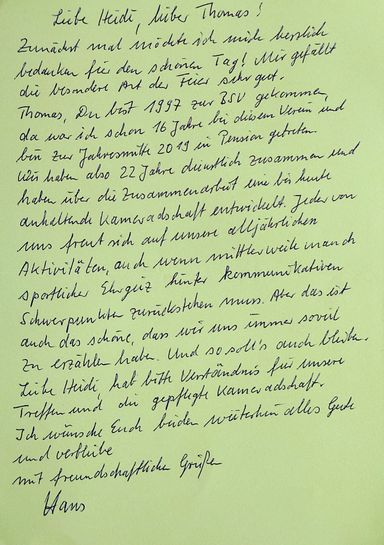 Liebe Heidi, lieber Thomas!
Zunächst mal möchte ich mich herzlich
bedanken für den schönen Tag! Mir gefällt
die besondere Art der Feier sehr gut.
Thomas, Du bist 1997 zur BSV gekommen,
da war ich schon 16 Jahre bei diesem Verein und
bin zur Jahresmitte 2019 in Pension getreten.
Wir haben also 22 Jahre dienstlich zusammen und
haben über die Zusammenarbeit eine bis heute
anhaltende Kameradschaft entwickelt. Jeder von
uns freut sich auf unsere alljährlichen
Aktivitäten, auch wenn mittlerweile manch
sportlicher Ehrgeiz hinter kommunikativen
Schwerpunkten zurückstehen muss. Aber das ist
auch das schöne, dass wir uns immer soviel
zu erzählen haben. Und so soll's auch bleiben.
Liebe Heidi, hab bitte Verständnis für unsere
Treffen und die gepflegte Kameradschaft.
Ich wünsche Euch beiden weiterhin alles Gute
und verbleibe
mit freundschaftlichen Grüßen
Hans